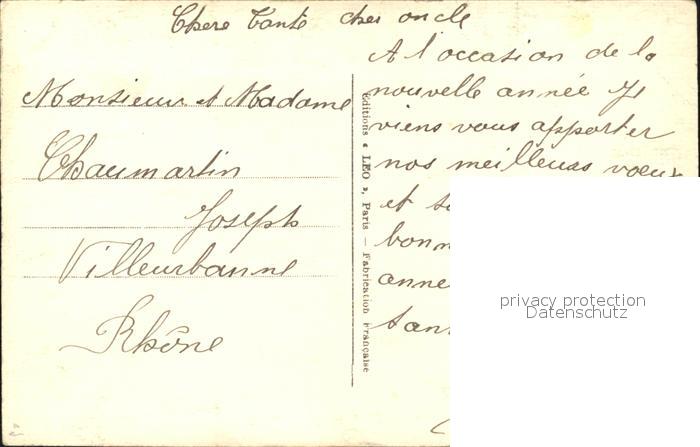 Chere Tante cher oncle
A l'occasion de la
nouvelle année je
viens vous apporter
nos meilleurs voeux
et
bonn
anne
sant
Monsieur et Madame
Chaumartin
Joseph
Villeurbanne
Rhône
Editions « LEO », Paris — Fabrication Française
privacy protection
Datenschutz